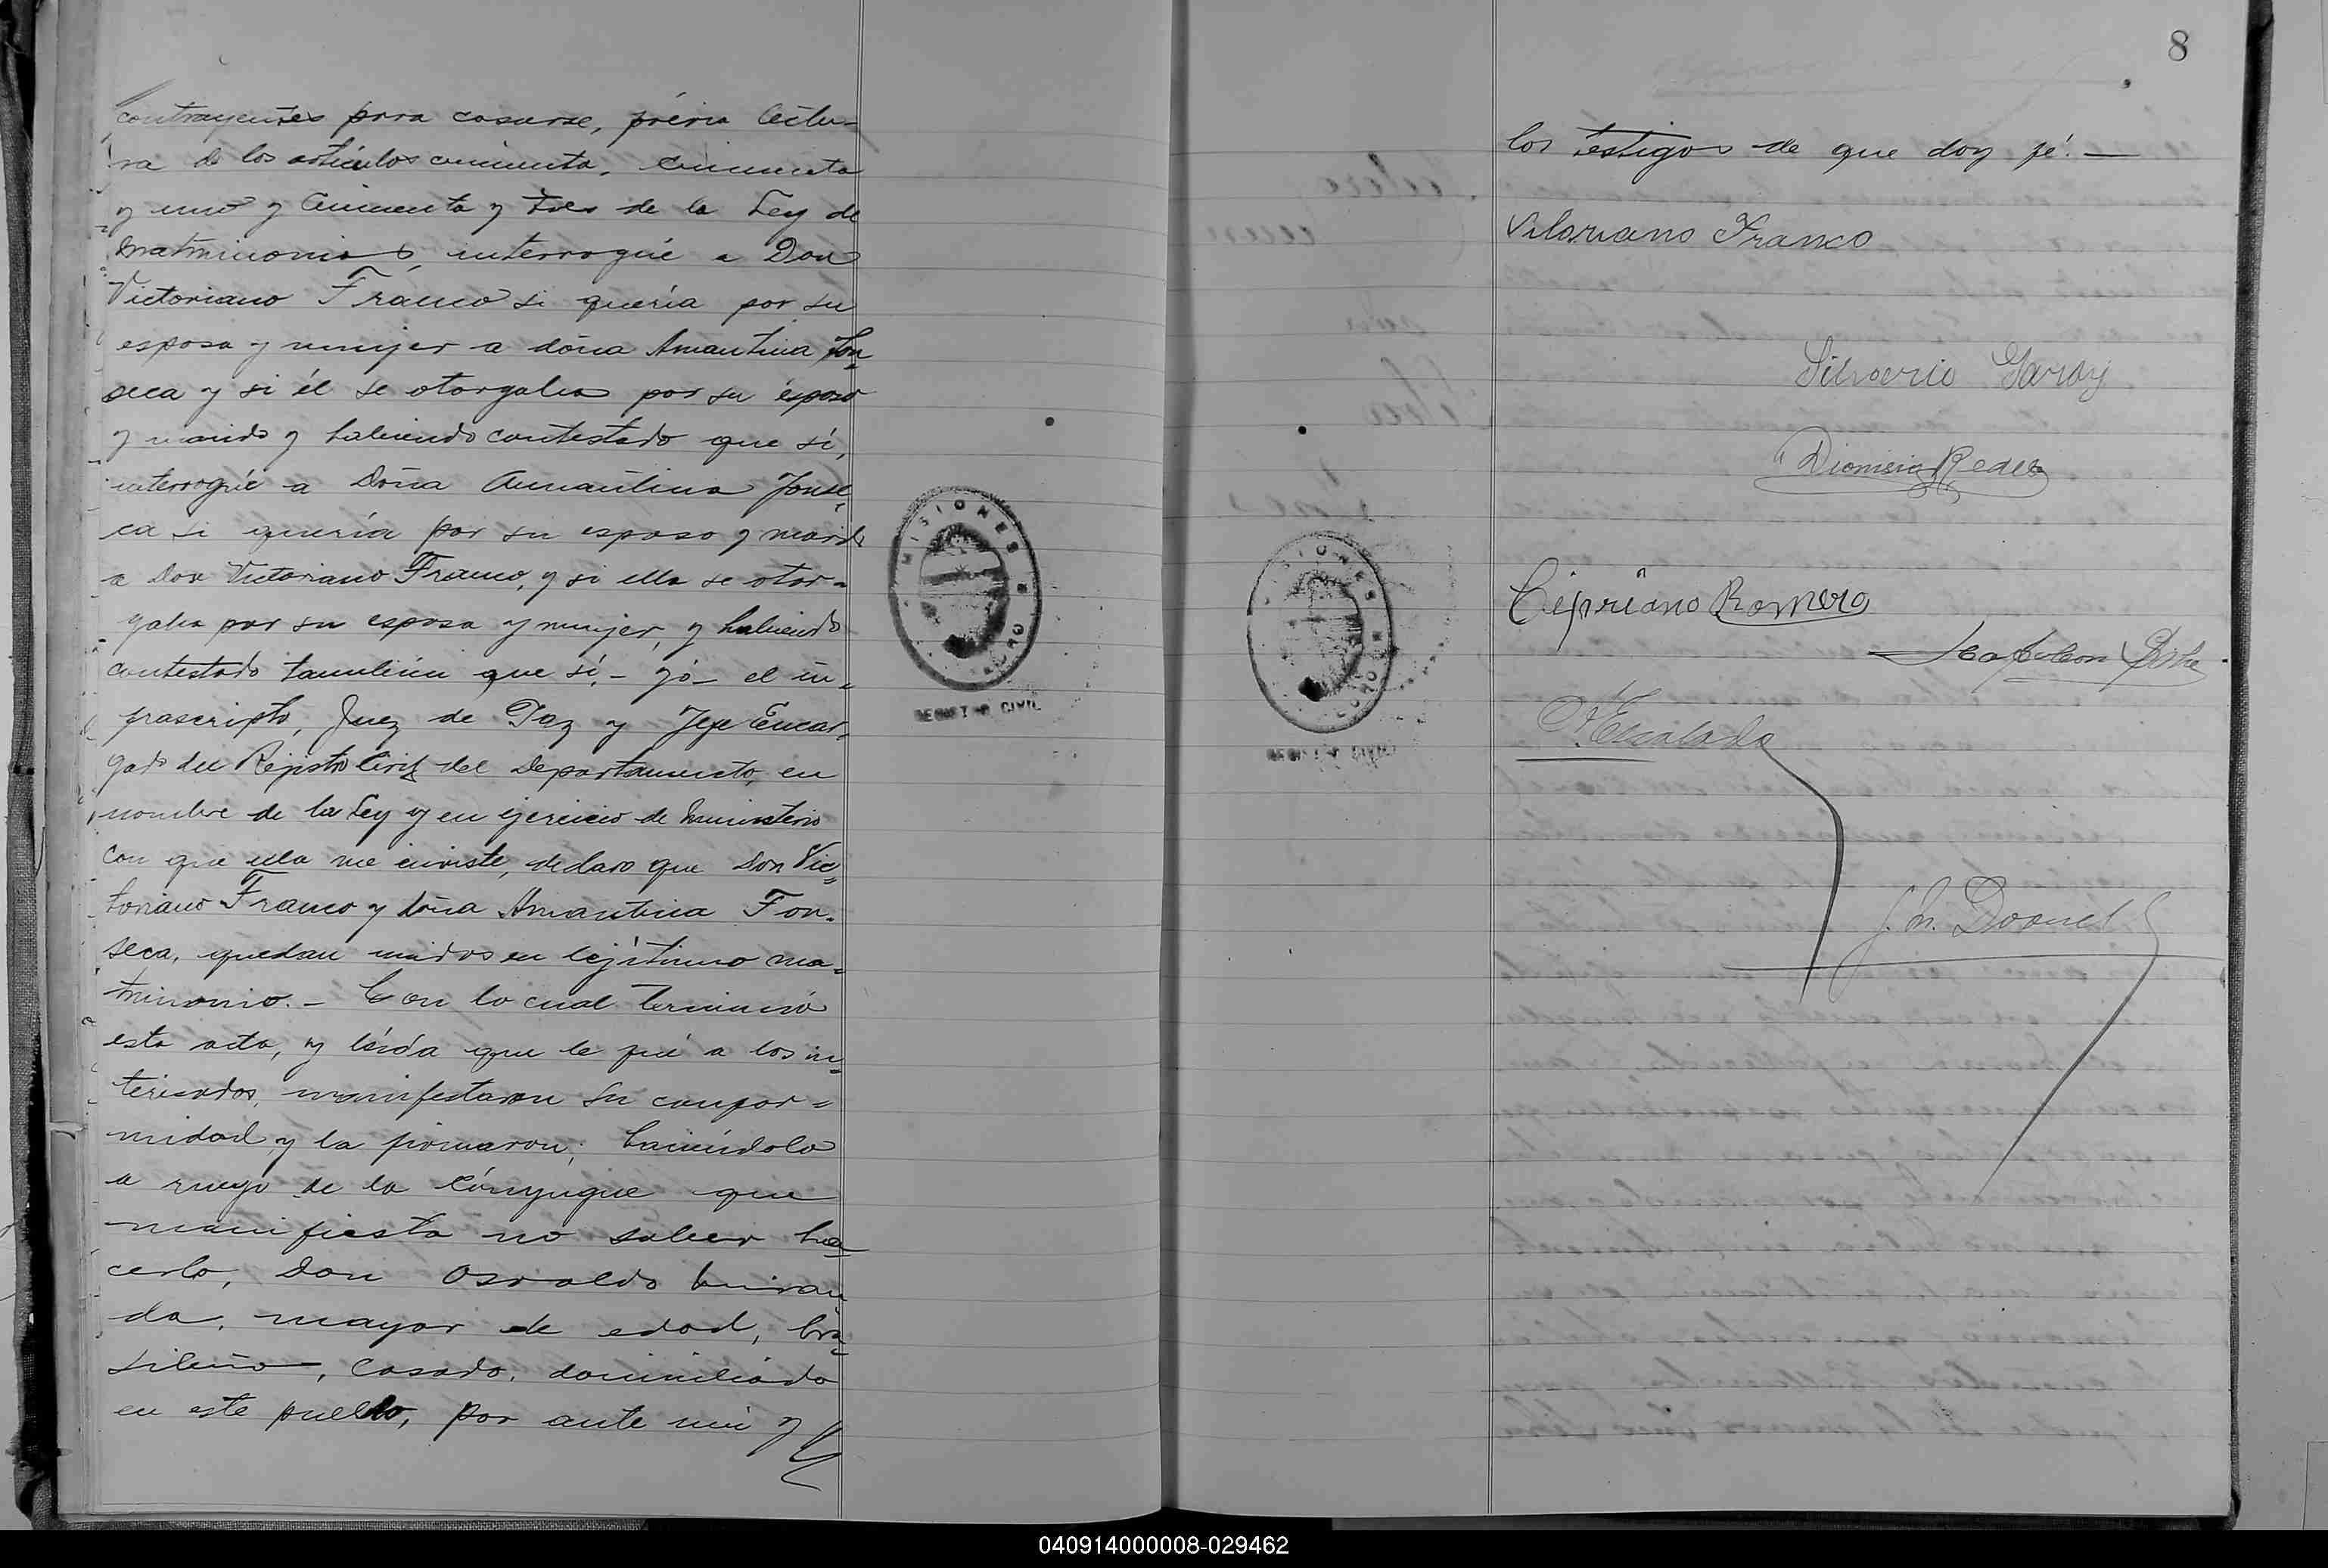 contrayentes para casarse, prévia lectu=
ra de los artículos cincuenta, cincuenta
y uno y cincuenta y tres de la Ley de
matrimonio, interrogué a Don
Victoriano Franco si quería por su
esposa y mujer a doña Amantina Fon=
seca y si él se otorgaba por su esposo
y marido y habiendo contestado que sí,
interrogué a Doña Amantina Fonse=
ca si quería por su esposo y marido
a Don Victoriano Franco, y si ella se otor=
gaba por su esposa y mujer, y habiendo
contestado tambien que sí, - yó el in=
frascripto, Juez de Paz y Jefe Encar=
gado del Registro Civil del Departamento, en
nombre de la Ley y en ejercicio de ministerio
con que ella me inviste, declaro que Don Vic=
toriano Franco y doña Amantina Fon=
seca, quedan unidos en legítimo ma=
trimonio. - Con lo cual terminó
esta acta, y léida que le fué a los in=
teresados, manifestaron su confor=
midad, y la firmaron; haciéndolo
a ruego de la cónyugue que
manifiesta no saber ha=
cerlo, Don Osvaldo Miran=
da, mayor de edad, bra=
sileño, casado, domiciliado
en este pueblo, por ante mi y
MISIONES
REGISTRO CIVIL
8
los testigos de que doy fé. —
Vitoriano Franco
Silverio Garay
Dionisio
Cipriano Romero
Napoleon
MISIONES
REGISTRO CIVIL
Escalada
J. M.
040914000008-029462